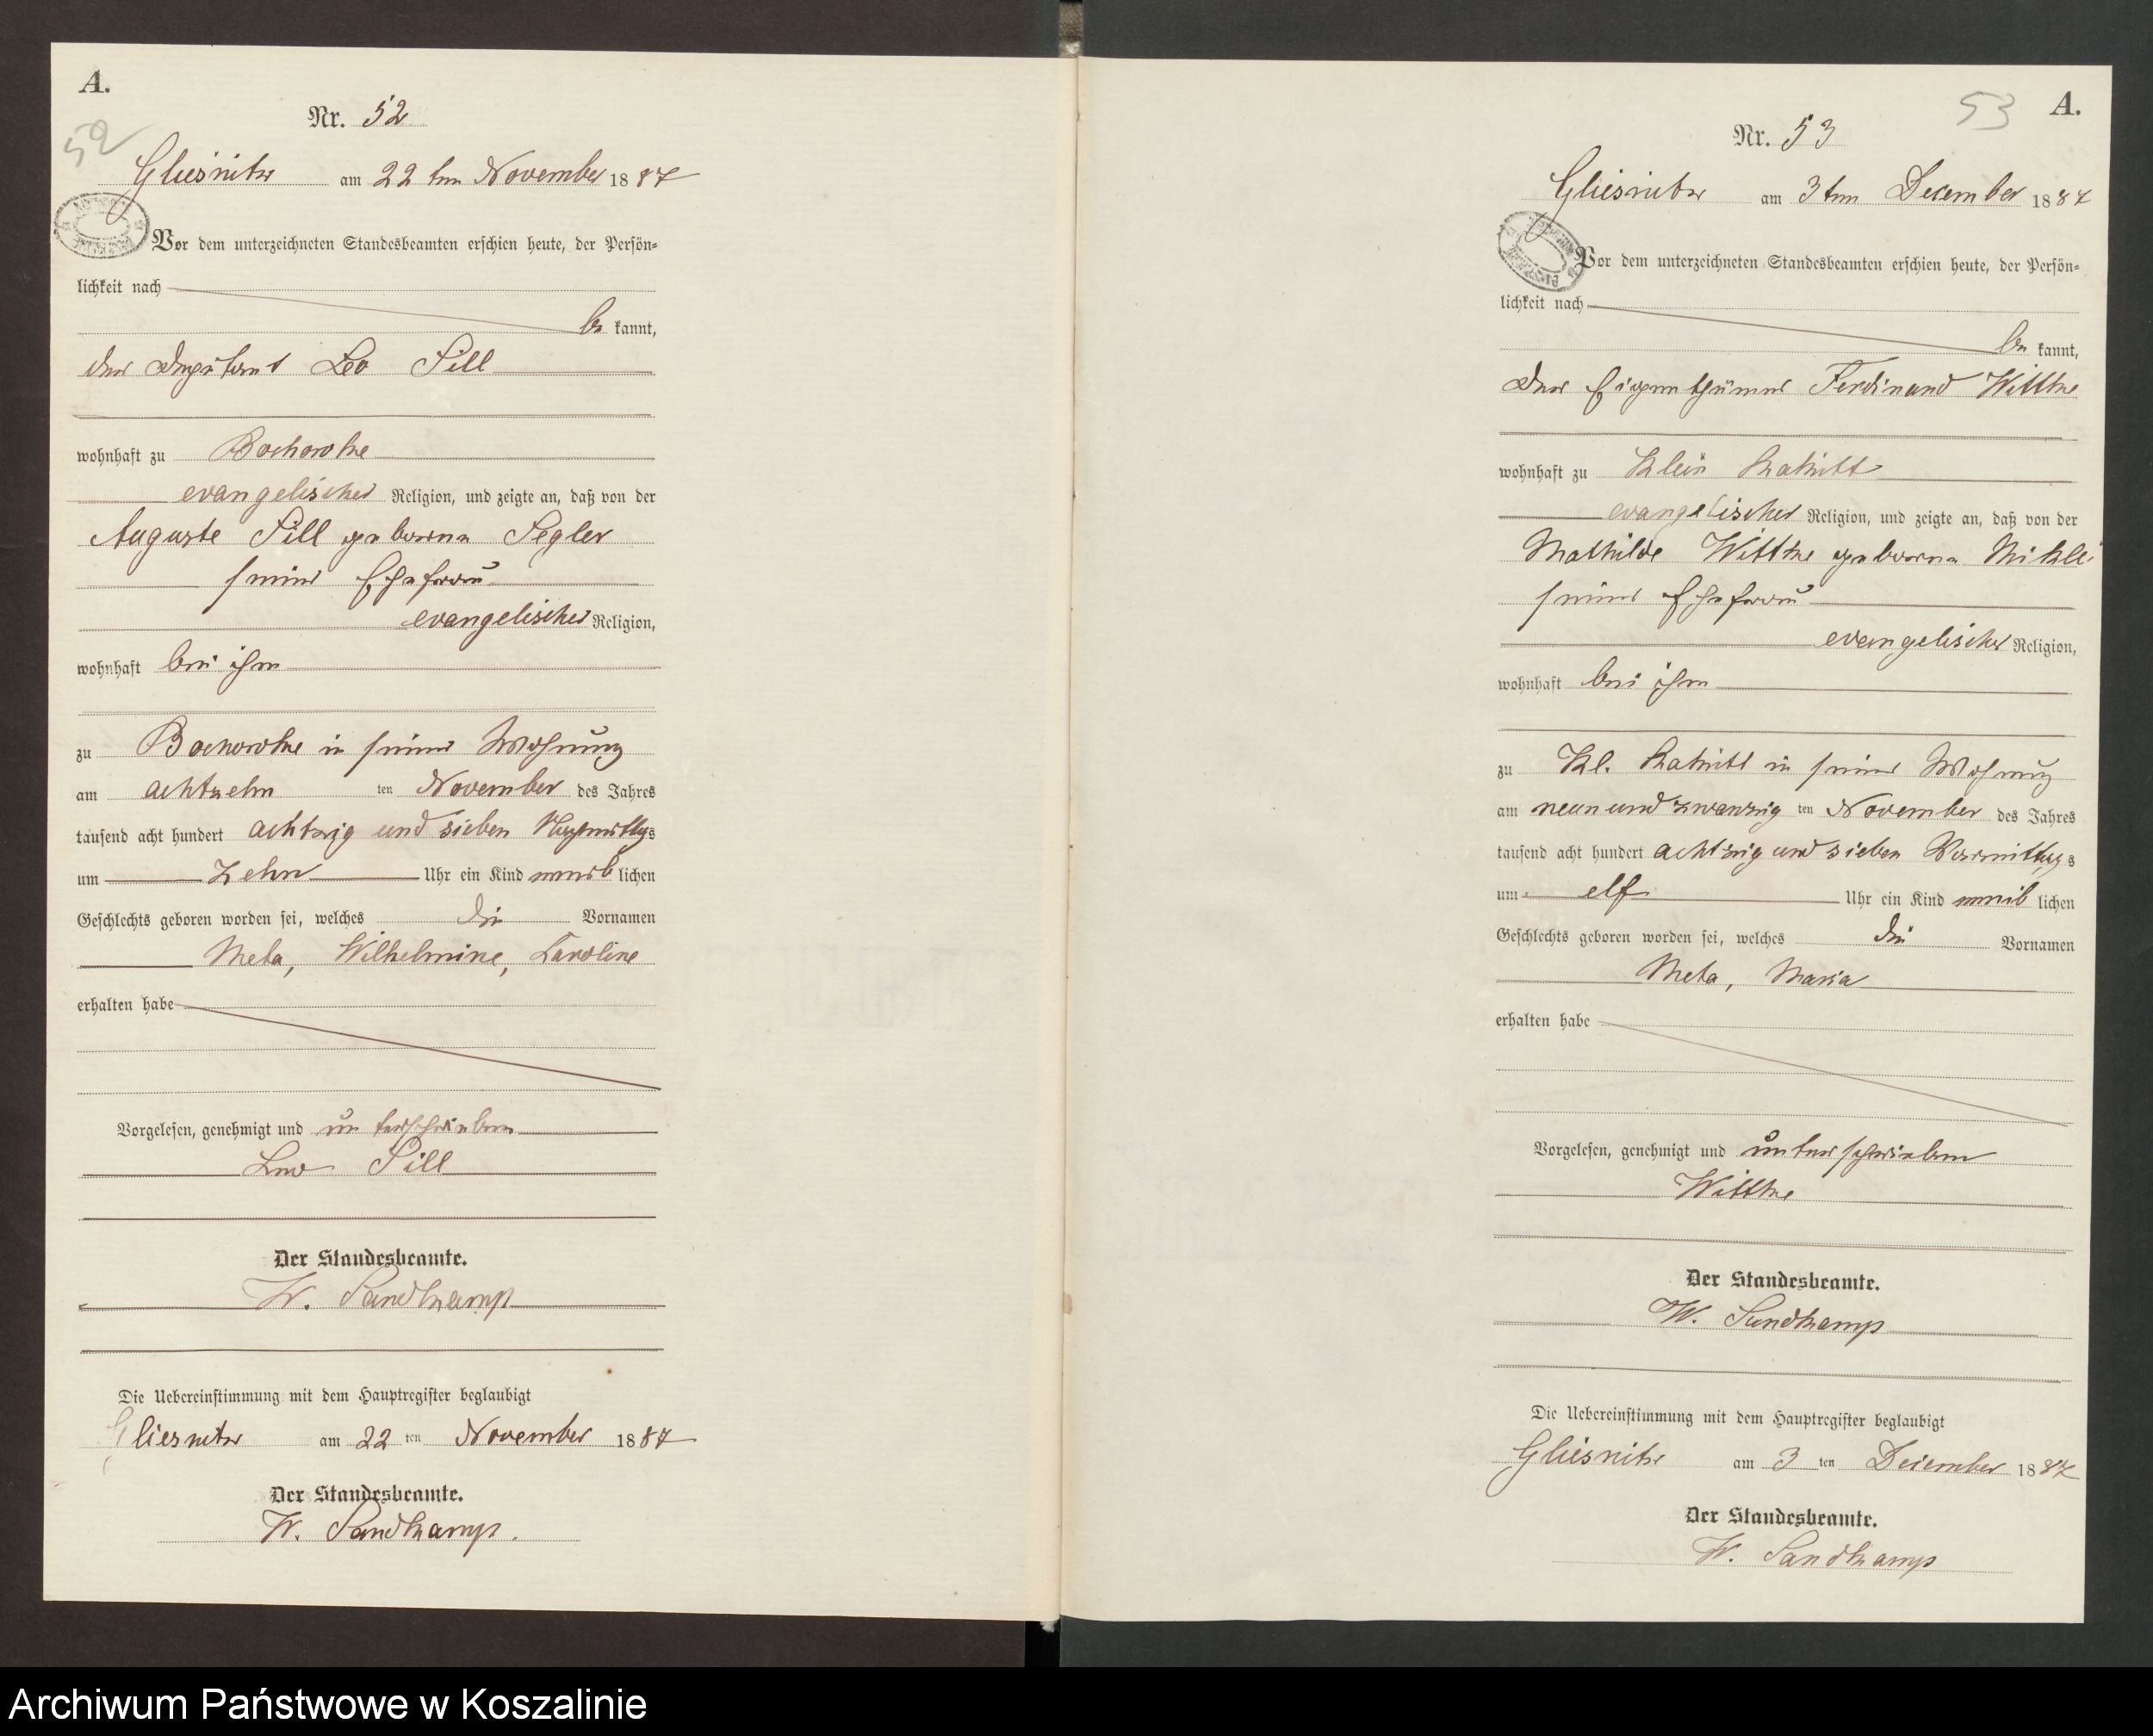 A.
Nr. 52
52
Gliesnitz am 22ten November 1887
Vor dem unterzeichneten Standesbeamten erschien heute, der Persön=
lichkeit nach
be kannt,
der Deputant Leo Sill
wohnhaft zu Bochowke
evangelischer Religion, und zeigte an, daß von der
Auguste Sill geborene Segler
seiner Ehefrau
evangelischer Religion,
wohnhaft bei ihm
zu Bochowke in seiner Wohnung
am achtzehn ten November des Jahres
tausend acht hundert achtzig und sieben Nachmittags
um Zehn Uhr ein Kind weib lichen
Geschlechts geboren worden sei, welches die Vornamen
Meta, Wilhelmine, Caroline
erhalten habe
Vorgelesen, genehmigt und unterschrieben
Leo Sill
Der Standesbeamte.
W. Sandkamp
Die Uebereinstimmung mit dem Hauptregister beglaubigt
Gliesnitz am 22 ten November 1887
Der Standesbeamte.
W. Sandkamp.
53 A.
Nr. 53
Gliesnitz am 3ten December 1887
Vor dem unterzeichneten Standesbeamten erschien heute, der Persön=
lichkeit nach
be kannt,
der Eigenthümer Ferdinand Witthe
wohnhaft zu Klein
evangelischer Religion, und zeigte an, daß von der
Mathilde Witthe geborene
seiner Ehefrau
evangelischer Religion,
wohnhaft bei ihm
zu Kl. in seiner Wohnung
am neun und zwanzig ten November des Jahres
tausend acht hundert achtzig und sieben Vormittags
um elf Uhr ein Kind weib lichen
Geschlechts geboren worden sei, welches die Vornamen
Meta, Maria
erhalten habe
Vorgelesen, genehmigt und unterschrieben
Witthe
Der Standesbeamte.
W. Sandkamp
Die Uebereinstimmung mit dem Hauptregister beglaubigt
Gliesnitz am 3 ten December 1887
Der Standesbeamte.
W. Sandkamp
Archiwum Państwowe w Koszalinie